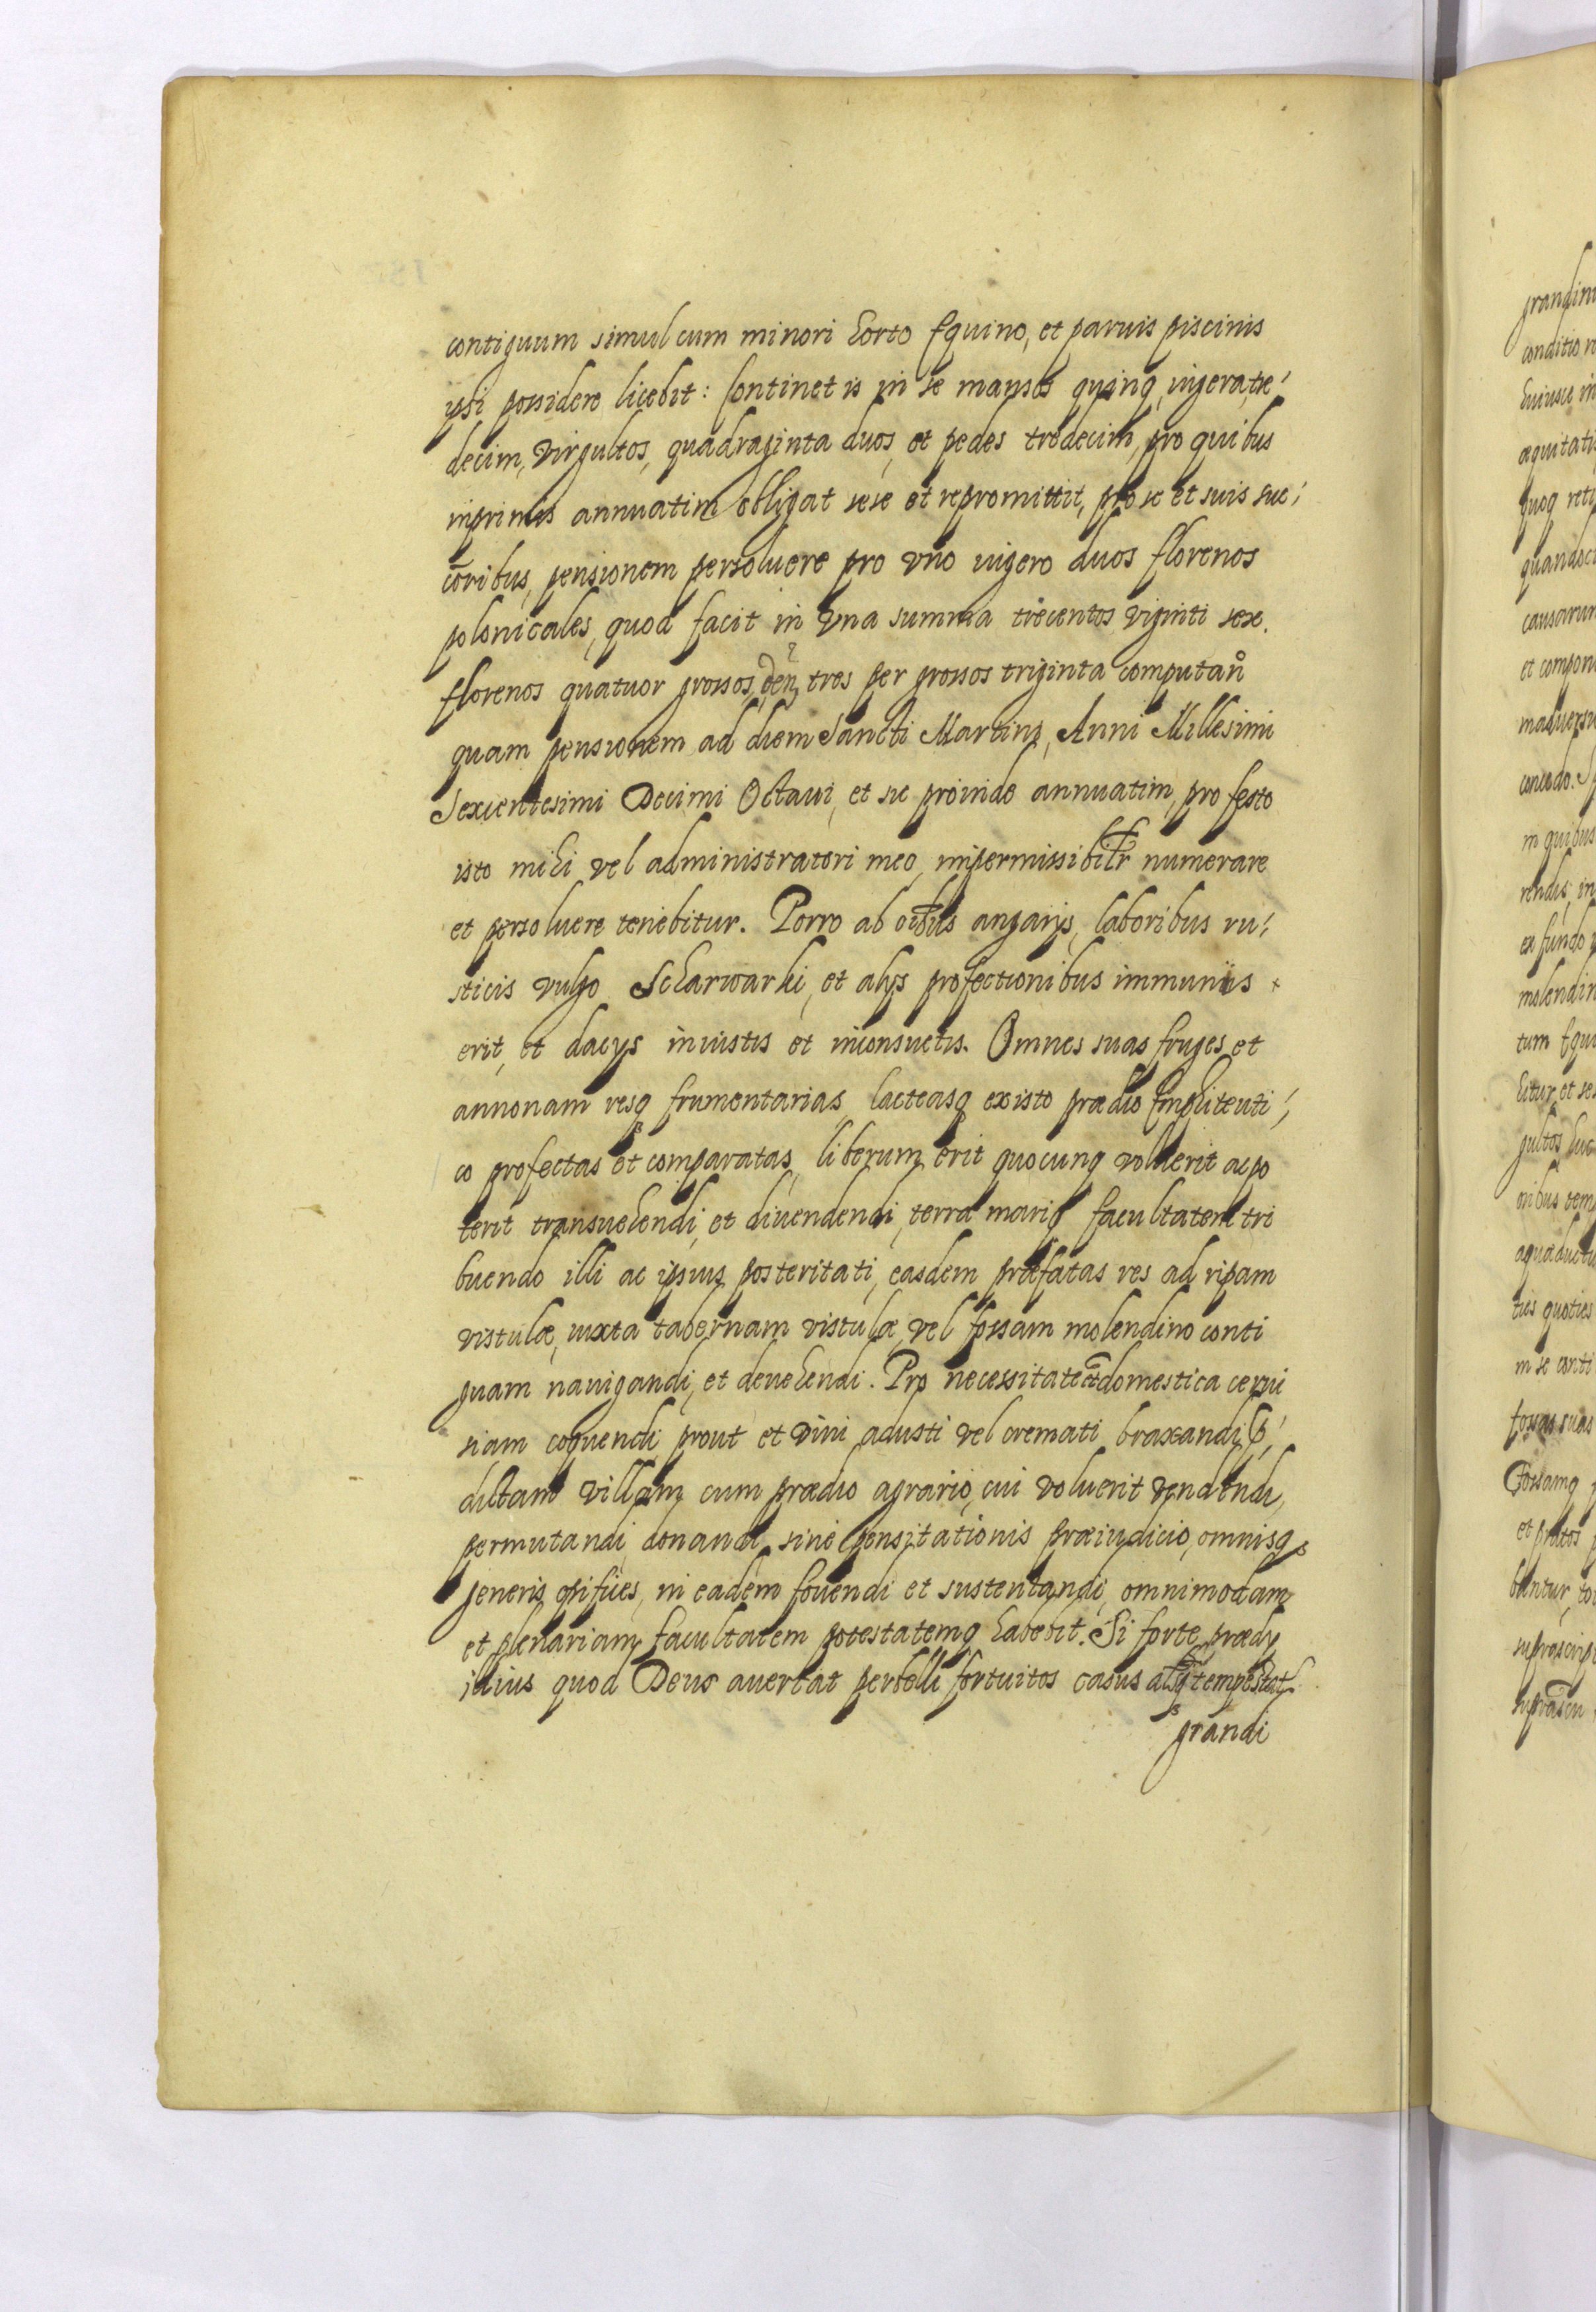 contiguum simul cum minori horto Equino, et paruis piscinis
ipsi possidere licebit: Continet is in se mansos quinq, iugera tre-
decim, virgultos, quadraginta duos, et pedes tredecim, pro quibus
inprimis annuatim obligat sese et repromittit, pro se et suis suc-
coribus, pensionem persoluere pro vno iugero duos florenos
polonicales, quod facit in vna summa trecentos viginti sex.
florenos quatuor grossos, den, tres per grossos triginta computan
quam pensionem ad diem Sancti Martini, Anni Millesimi
Sexcentesimi Decimi Octaui, et sic proinde annuatim, pro festo
isto mihi vel administratori meo, impermissibilr numerare
et persoluere tenebitur. Porro ab oibus angarijs, laboribus ru-
sticis vulgo Scharwarki, et alijs profectionibus immuniis
erit, et dacijs iniustis et inconsuetis. Omnes suas fruges et
annonam resq frumentarias, lacteasq ex isto prædio Emphiteuti-
co profectas et comparatas, liberum erit quocunq voluerit ac po
terit transuehendi, et diuendendi, terra mariq facultatem tri
buendo illi ac ipsius posteritati, easdem præfatas res ad ripam
vistulæ, iuxta tabernam vistulæ, vel fossam molendino conti
guam nauigandi, et deuehendi. Pro necessitate domestica cerui
siam coquendi prout et vini adusti vel cremati braxandi
dictam villam cum prædio agrario, cui voluerit vendendi,
permutandi, donandi, sine pensitationis præiudicio, omnisq
generis opifices, in eadem fouendi et sustentandi, omnimodam
et plenariam facultatem potestatemq habebit. Si forte prædij
illius quod Deus auertat per belli fortuitos casus tempestat
grandi